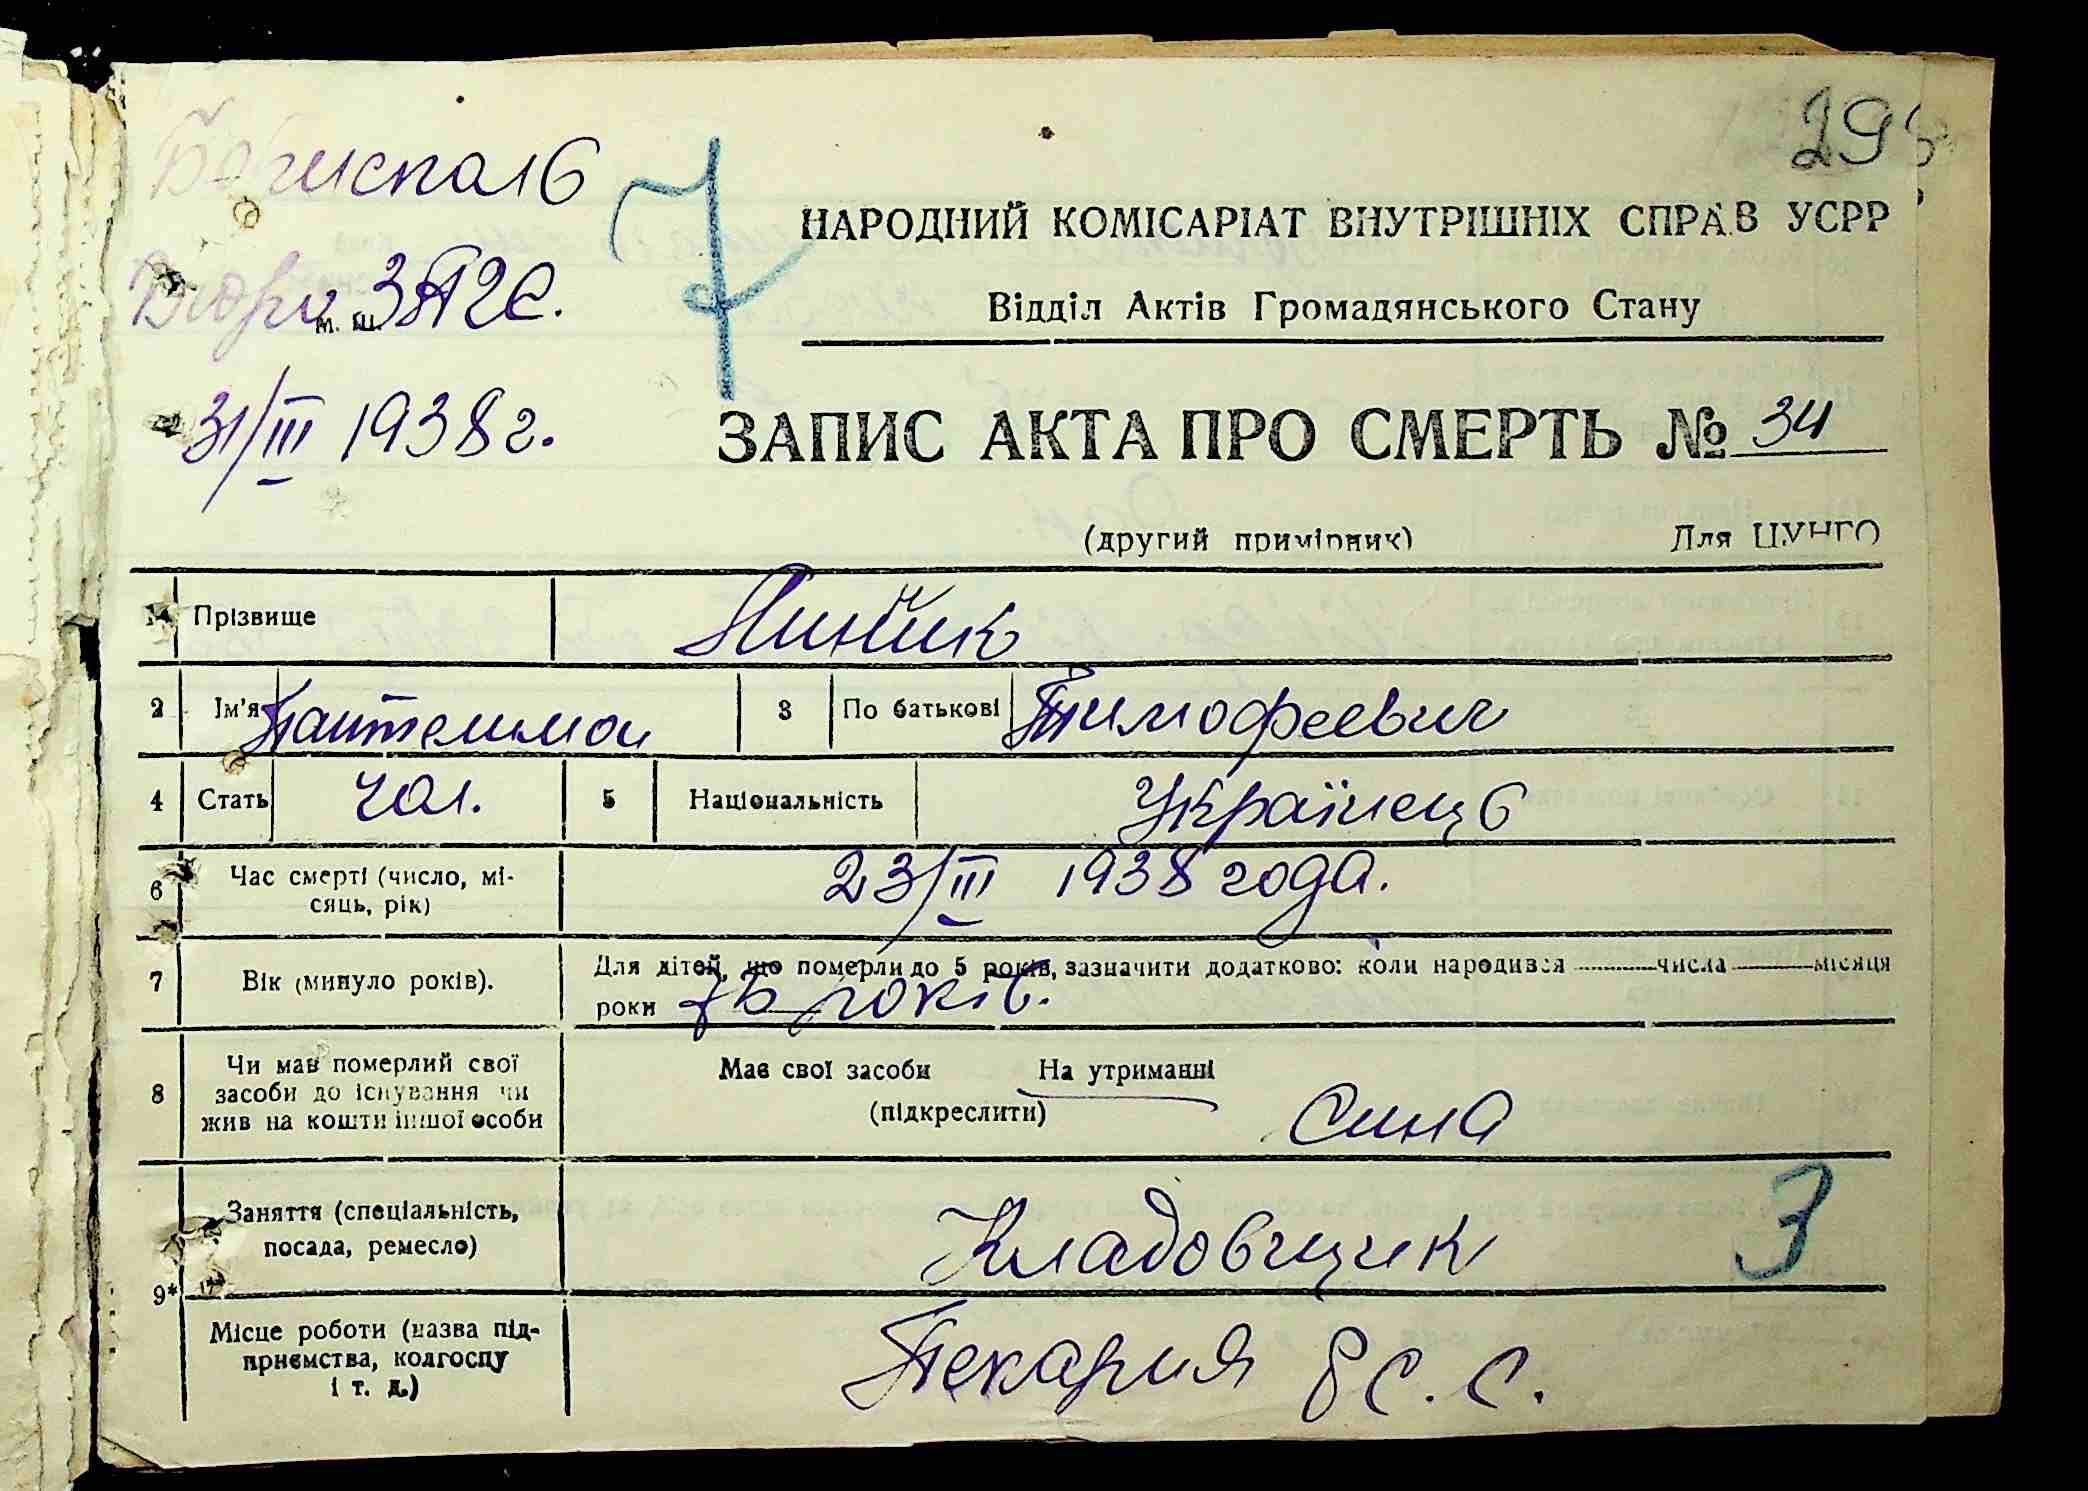 298
Бориспіль
Бюро ЗАГС.
м. ш.
31/III 1938 г.
7
НАРОДНИЙ КОМІСАРІАТ ВНУТРІШНІХ СПРАВ УСРР
Відділ Актів Громадянського Стану
ЗАПИС АКТА ПРО СМЕРТЬ № 34
(другий примірник) Для ЦУНГО
1 Прізвище
2 Ім'я Пантелимон 3 По батькові Тимофеевич
4 Стать чол. 5 Національність Українець
6 Час смерті (число, мі-
сяць, рік) 23/III 1938 года.
7 Вік (минуло років). Для дітей, що померли до 5 років, зазначити додатково: коли народився числа місяця
роки 75 років.
8 Чи мав померлий свої
засоби до існування чи
жив на кошти іншої особи
Має свої засоби На утриманні
(підкреслити) сина
9* Заняття (спеціальність,
посада, ремесло) Кладовщик 3
Місце роботи (назва під-
приємства, колгоспу
і т. д.) Пекария